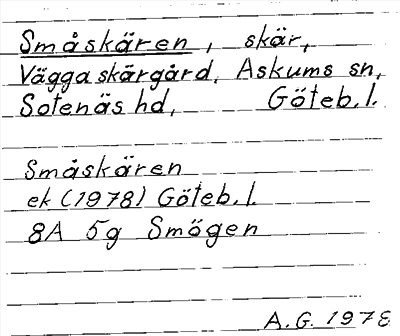 Småskären, skär,
Vägga skärgård, Askums sn,
Sotenäs hd, Göteb. l.
Småskären
ek (1978) Göteb. l.
8A 5g Smögen
A.G. 1978